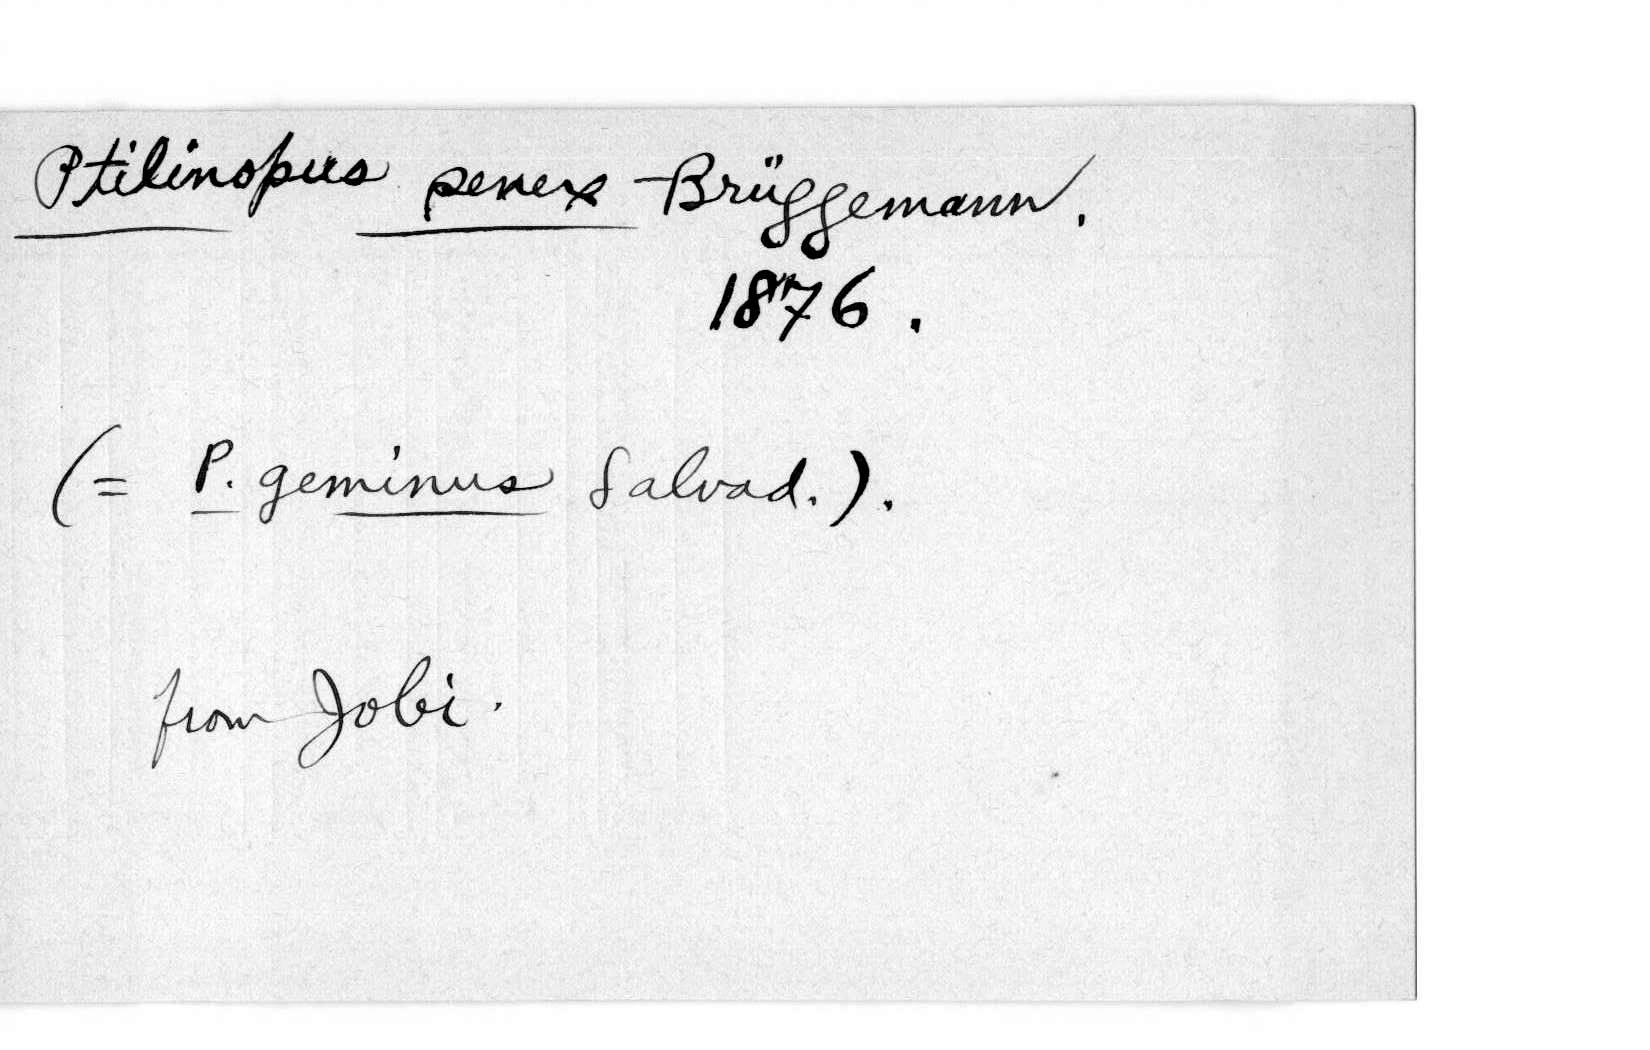 Ptilinopus senex Brüggemann.
1876.
(= P. geminus Salvad.).
from Jobi.